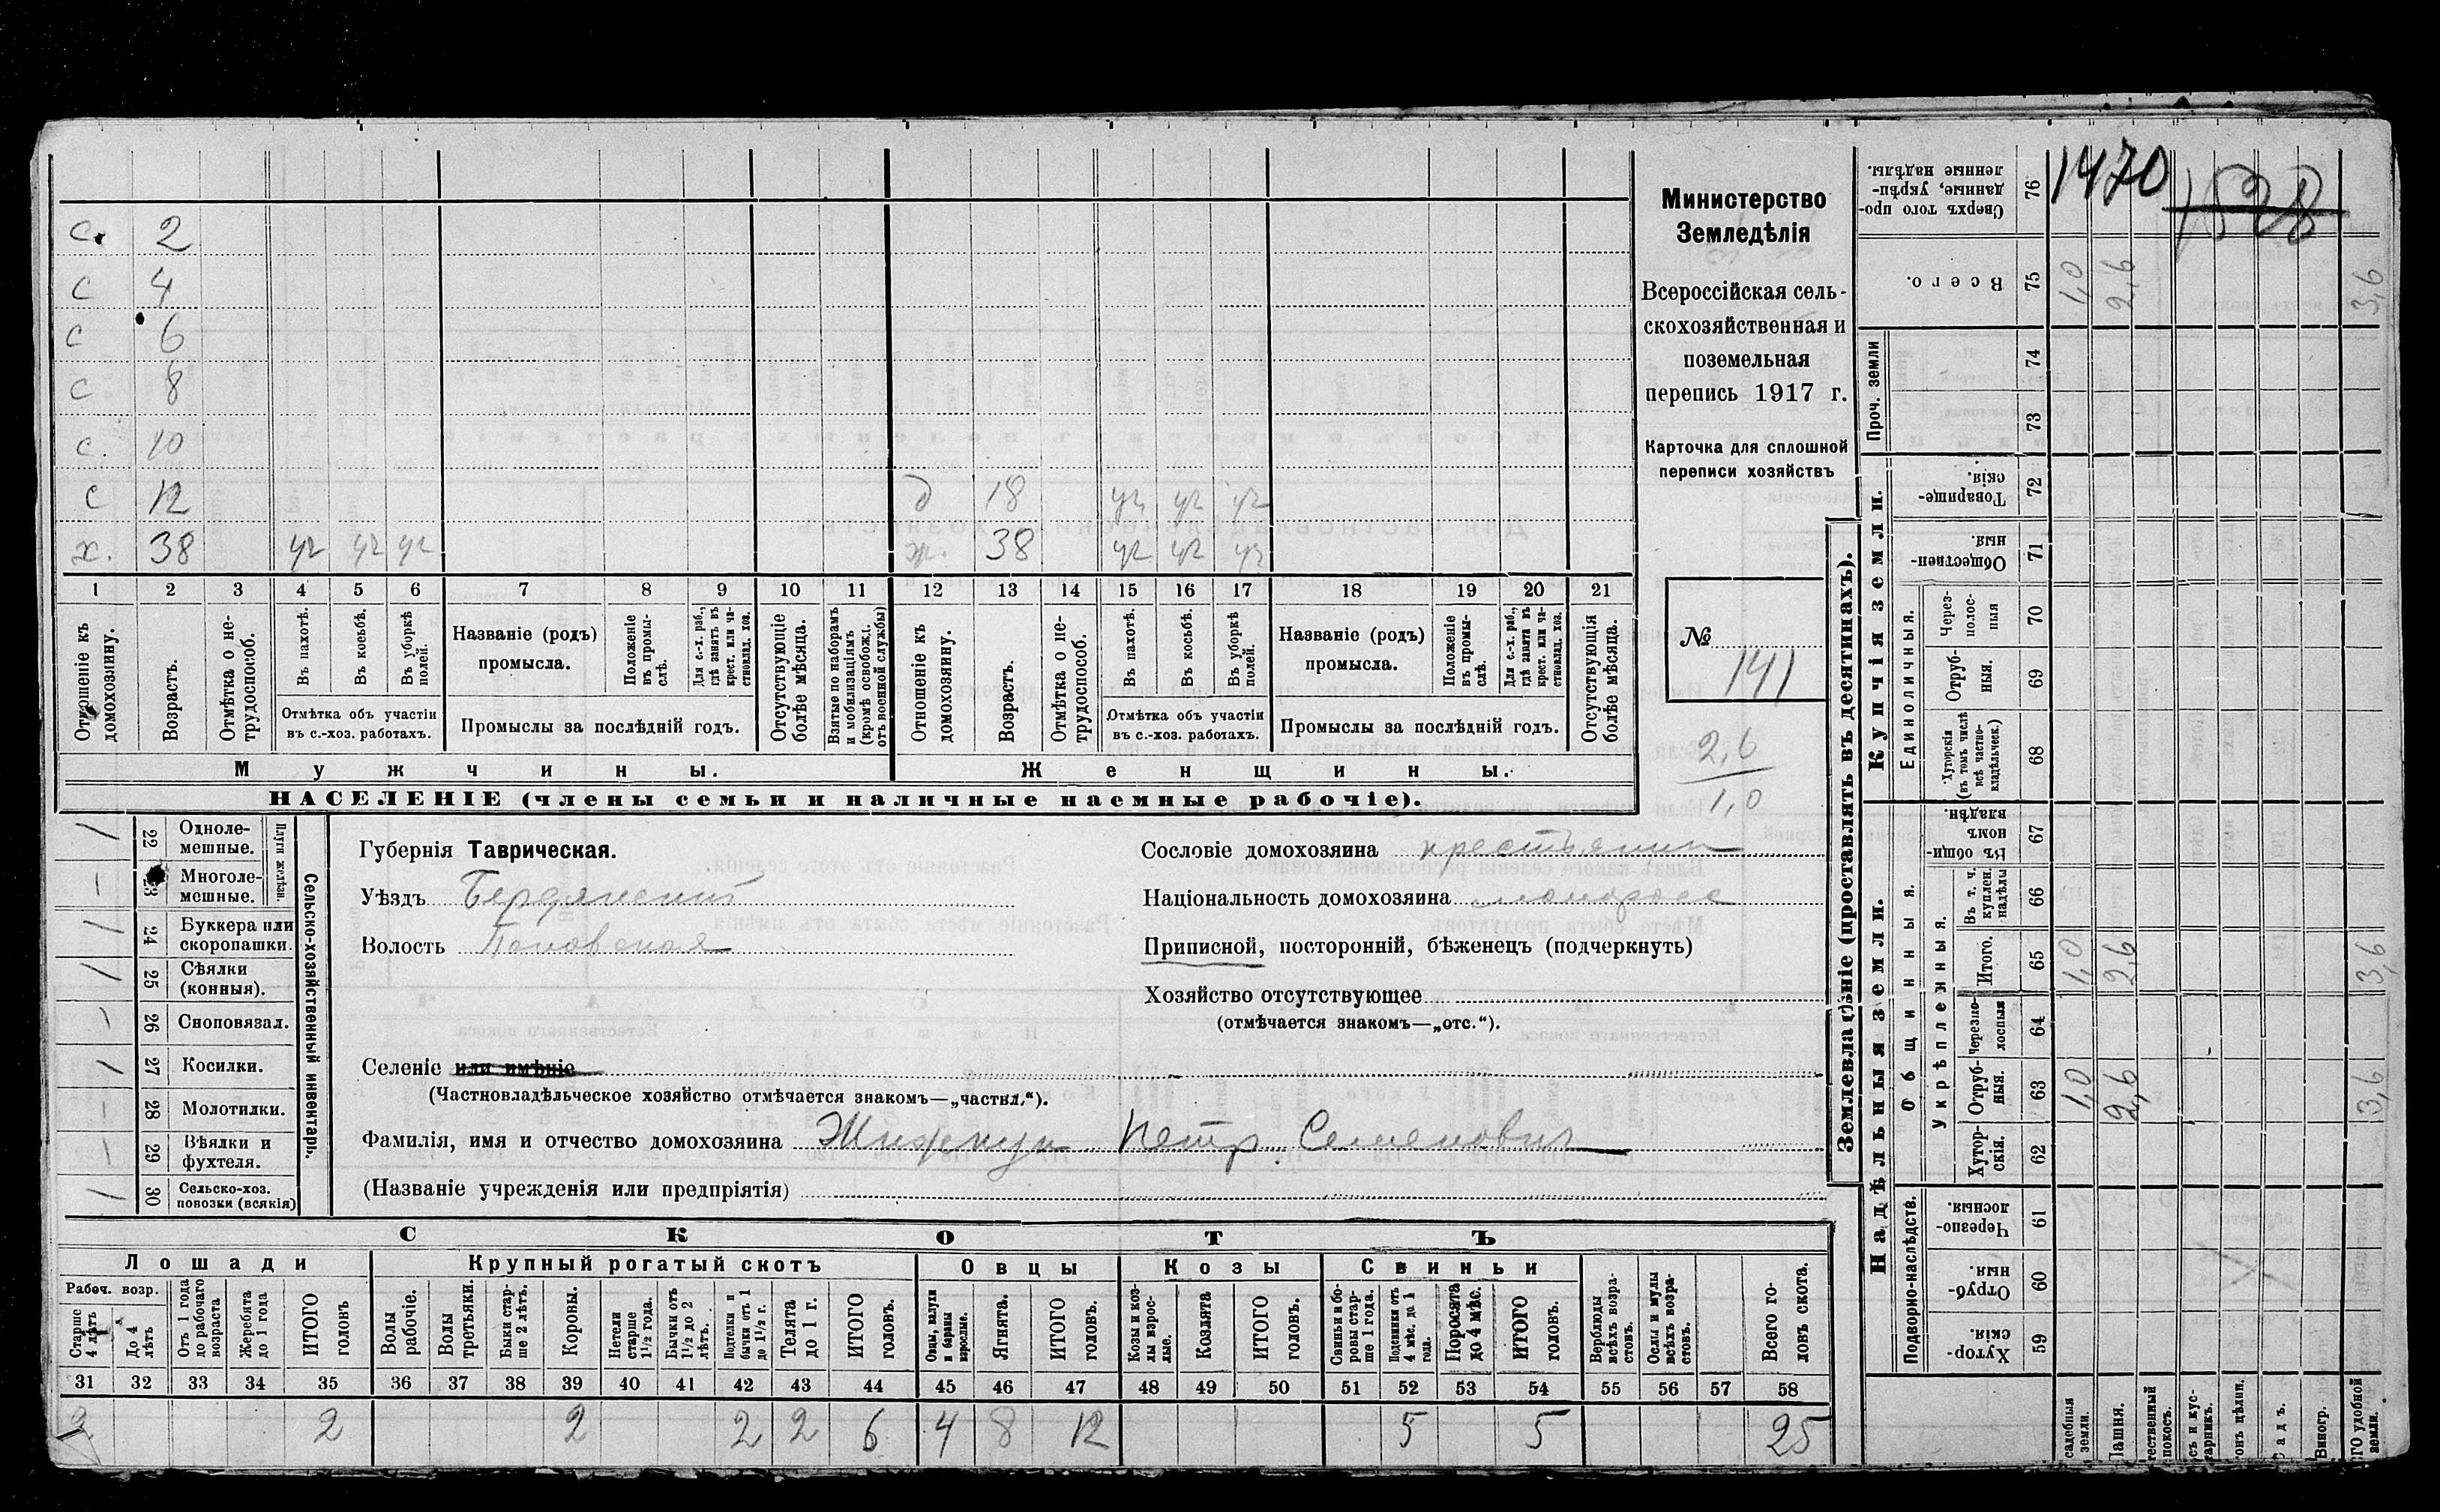 с. 2
с 4
с 6
с 8
с. 10
с 12 д 18 уч уч уч
х. 38 уч уч уч ж. 38 уч уч уч
1 2 3 4 5 6 7 8 9 10 11 12 13 14 15 16 17 18 19 20 21
Отношеніе къ домохозяину.
Возрастъ.
Отмѣтка о нетрудоспособ.
Въ пахотѣ.
Въ косьбѣ.
Въ уборкѣ полей.
Отмѣтка объ участіи въ с.-хоз. работахъ.
Названіе (родъ) промысла.
Положеніе въ промыслѣ.
Для с.-х. раб., гдѣ занятъ въ крест. или частновлад. хоз.
Промыслы за послѣдній годъ.
Отсутствующіе болѣе мѣсяца.
Взятые по наборамъ и мобилизаціямъ (кромѣ освобожд. отъ военной службы)
Отношеніе къ домохозяину.
Возрастъ.
Отмѣтка о нетрудоспособ.
Въ пахотѣ.
Въ косьбѣ.
Въ уборкѣ полей.
Отмѣтка объ участіи въ с.-хоз. работахъ.
Названіе (родъ) промысла.
Положеніе въ промыслѣ.
Для с.-х. раб., гдѣ занята въ крест. или частновлад. хоз.
Промыслы за послѣдній годъ.
Отсутствующія болѣе мѣсяца.
Мужчины. Женщины.
НАСЕЛЕНІЕ (члены семьи и наличные наемные рабочіе).
Министерство
Земледѣлія
Всероссійская сель-
скохозяйственная и
поземельная
перепись 1917 г.
Карточка для сплошной
переписи хозяйствъ
№ 141
2,6
1,0
Сельско-хозяйственный инвентарь.
Плуги желѣзн.
/ 22 Одноле-мешные.
— 23 Многоле-мешные.
/ 24 Буккера или скоропашки.
/ 25 Сѣялки (конныя).
— 26 Сноповязал.
/ 27 Косилки.
— 28 Молотилки.
— 29 Вѣялки и фухтеля.
/ 30 Сельско-хоз. повозки (всякія)
Губернія Таврическая.
Уѣздъ Бердянский
Волость Поповская
Селеніе или имѣніе
(Частновладѣльческое хозяйство отмѣчается знакомъ—„частвл.“).
Фамилія, имя и отчество домохозяина Петр Семенович
(Названіе учрежденія или предпріятія)
Сословіе домохозяина крестьянин
Національность домохозяина малоросс
Приписной, посторонній, бѣженецъ (подчеркнуть)
Хозяйство отсутствующее
(отмѣчается знакомъ—„отс.“).
СКОТЪ
Лошади Крупный рогатый скотъ Овцы Козы Свиньи
Рабоч. возр.
Старше 4 лѣтъ
До 4 лѣтъ
Отъ 1 года до рабочаго возраста
Жеребята до 1 года
ИТОГО головъ
Волы рабочіе.
Волы третьяки.
Быки старше 2 лѣтъ.
Коровы.
Нетели старше 1½ года.
Бычки отъ 1½ до 2 лѣтъ.
Подтелки и бычки отъ 1 до 1½ г.
Телята до 1 г.
ИТОГО головъ.
Овцы, валухи и бараны взрослые.
Ягнята.
ИТОГО головъ.
Козы и козлы взрослые.
Козлята
ИТОГО головъ.
Свиньи и боровы старше 1 года.
Подсвинки отъ 4 мѣс. до 1 года.
Поросята до 4 мѣс.
ИТОГО головъ.
Верблюды всѣхъ возрастовъ.
Ослы и мулы всѣхъ возрастовъ.
Всего головъ скота.
31 32 33 34 35 36 37 38 39 40 41 42 43 44 45 46 47 48 49 50 51 52 53 54 55 56 57 58
2 2 2 2 2 6 4 8 12 5 5 25
Землевладѣніе (проставлять въ десятинахъ).
1470 1528
Сверхъ того проданные, укрѣпленные надѣлы. 76
Всего. 75 1,0 2,6 3,6
Проч. земли
74
73
Купчія земли.
Товарищескія. 72
Общественныя. 71
Единоличныя.
Черезполосныя 70
Отрубныя. 69
Хуторскія (въ томъ числѣ всѣ частновладѣльческ.) 68
Надѣльныя земли.
Общинныя.
Въ общинномъ владѣн. 67
Укрѣпленныя.
Въ т. ч. куплен. надѣлы 66
Итого. 65 1,0 2,6 3,6
Черезполосныя 64
Отрубныя. 63 1,0 2,6 3,6
Хуторскія. 62
Подворно-наслѣдств.
Черезполосныя. 61
Отрубныя. 60
Хуторскія. 59
садебныя земли.
Пашня.
тественный покосъ.
съ и кустарникъ.
онъ цѣлин.
Садъ.
Виногр.
ГО удобной земли.